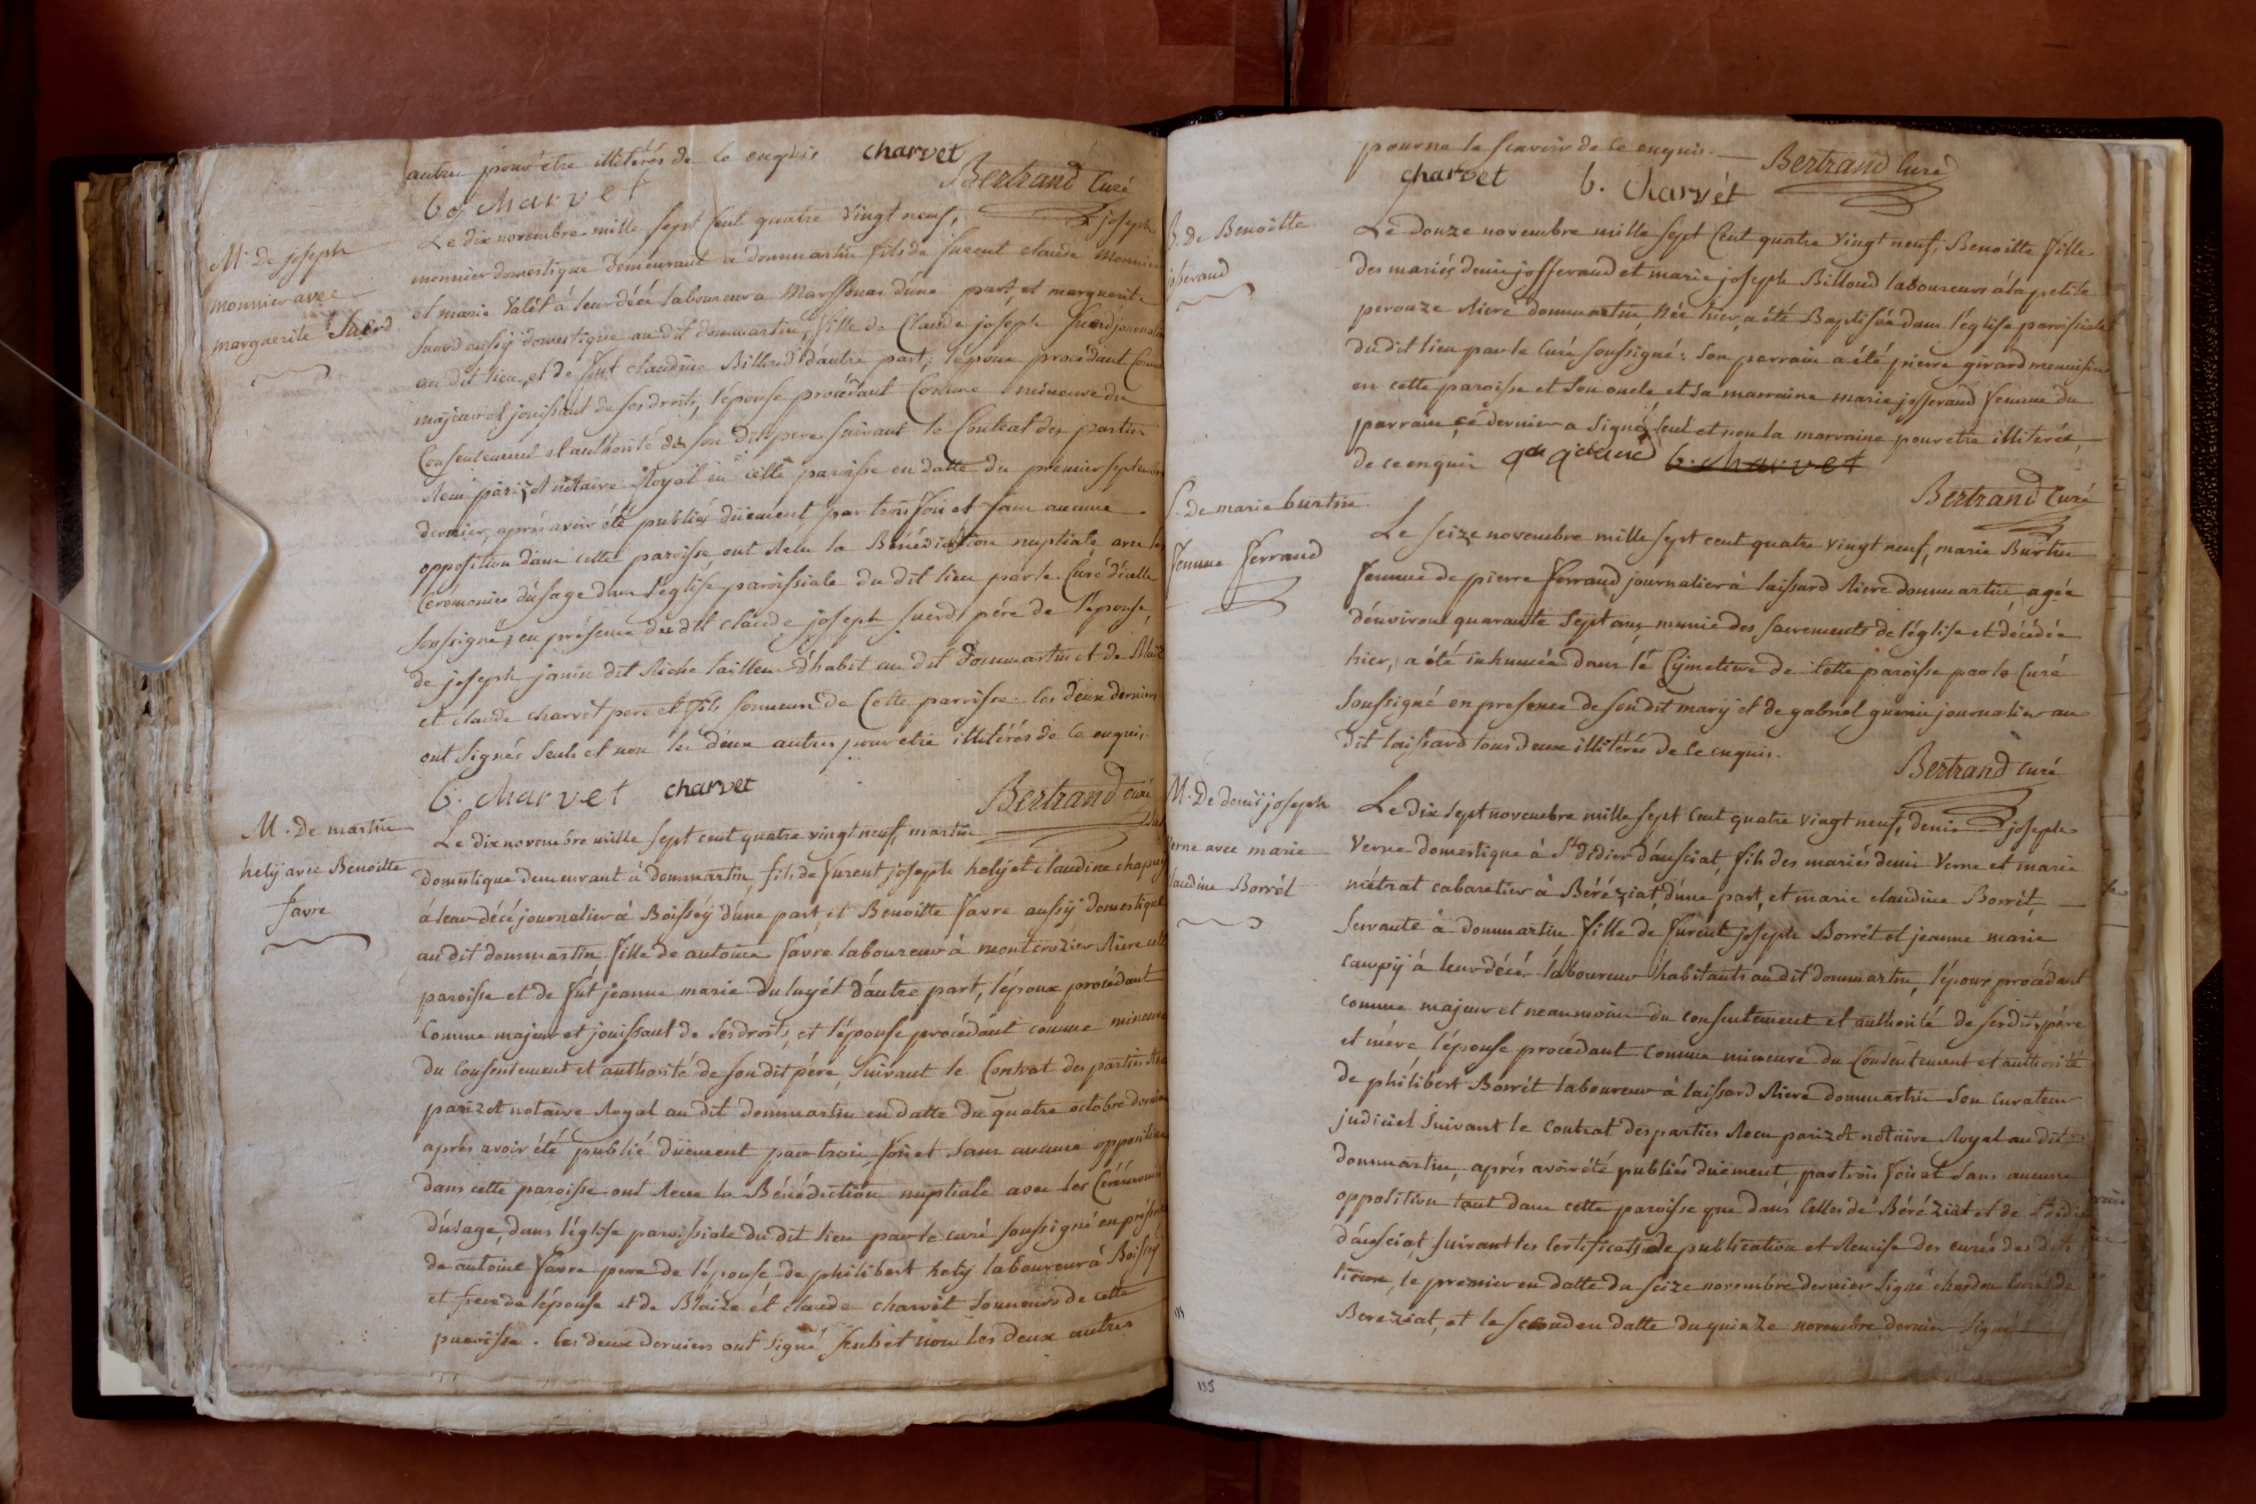 autres pour etre illiterés de ce enquis charvet
b. charvet Bertrand Curé
M. de joseph
monnier avec
marguerite Suerd
Le dix novembre mille sept Cent quatre vingt neuf, joseph
monnier domestique demeurant a dommartin fils de furent claude monnier
et marie Valét á leur décé laboureur a Marssonas d'une part, et marguerite
Suerd aussy domestique au dit dommartin, fille de Claude joseph Suerd journalier
au dit lieu, et de fut claudine Billoud d'autre part; l'époux procédant Comme
majeur et jouissant de ses droits, l'épouse procédant Comme mineure du
Consentement et authorité de son dit pere suivant le Contrat des parties
Recu parizot notaire Royal en cette paroisse en datte du premier septembre
dernier, aprés avoir été publiés düement par trois fois et sans aucune
opposition dans cette paroisse, ont Recu la Bénédiction nuptiale avec les
Cerémonies d'usage dans l'église paroissiale du dit lieu par le Curé d'icelle
soussigné, en présence du dit claude joseph suerd, pére de l'épouse,
de joseph janin dit Riche tailleur d'habit au dit Dommartin et de Blaize
et claude charvet pere et fils sonneurs de Cette parroisse. les deux derniers
ont signés seuls et non les deux autres pour etre illitérés de ce enquis.
b. charvet charvet Bertrand curé
M. De martin
hely avec Benoitte
favre
Le dix novembre mille sept cent quatre vingt neuf, martin
domestique demeurant à dommartin, fils de furent joseph hely et claudine chapuy
á leur décé journalier à Boisséy d'une part, et Benoitte favre aussy domestique
au dit dommartin fille de antoine favre laboureur à montcrozier Riere cette
paroisse et de fut jeanne marie du luyét d'autre part, l'époux procédant
Comme majeur et jouissant de ses droits, et l'épouse procédant comme mineure
du Consentement et authorité de son dit pére, suivant le Contrat des parties Recu
parizot notaire Royal au dit dommartin en datte du quatre octobre dernier
aprés avoir été publié düement par trois fois et sans aucune opposition
dans cette paroisse ont Recu la Bénédiction nuptiale avec les Cérémonies
d'usage, dans l'église paroissiale du dit lieu par le curé soussigné en présence
de antoine favre pere de l'épouse, de philibert hely laboureur à Boissey
et frere de l'épouse et de Blaize et claude charvét sonneurs de cette
paroisse. les deux derniers ont signé seuls et non les deux autres
pour ne le scavoir de ce enquis. — Bertrand Curé
charvet b. charvét
B. de Benoitte
josserand
Le douze novembre mille sept Cent quatre vingt neuf, Benoitte fille
des mariés denis josserand et marie joseph Billoud laboureurs à la petite
perouze Riere dommartin, Née hier, a été Baptisée dans l'église paroissiale
du dit lieu par le Curé soussigné: son parrain a été pierre girard menuisier
en cette paroisse et son oncle et sa marraine marie josserand femme du
parrain ce dernier a signé seul et non la marraine pour etre illiterée,
de ce enquis b. charvet
Bertrand Curé
S. de marie burtin
femme ferrand
Le seize novembre mille sept cent quatre vingt neuf, marie Burtin
femme de pierre ferrand journalier à laissard Riere dommartin agée
d'environ quarante sept ans, munie des sacrements de l'église et décédée
hier, a été inhumée dans le Cymetiere de Cette paroisse par le Curé
soussigné en presence de son dit mary et de gabriel guerin journalier au
dit laissard tous deux illitérés de ce enquis.
Bertrand curé
M. De denis joseph
verne avec marie
claudine Borrét
Le dix sept novembre mille sept Cent quatre vingt neuf, denis joseph
Verne domestique à St didier d'aussiat, fils des mariés denis Verne et marie
métrat cabaretier à Béréziat, d'une part, et marie claudine Borrét,
servante à dommartin fille de furent joseph Borrét et jeanne marie
campy á leur décé laboureur habitants au dit dommartin, l'époux procédant
comme majeur et neanmoins du consentement et authorité de ses dits pére
et mére, l'épouse procédant comme mineure du Consentement et authorité
de philibert Borrét laboureur à laissard Riere dommartin son curateur
judiciel suivant le contrat des parties Recu parizot notaire Royal au dit
dommartin, aprés avoir été publiés düement, par trois fois et sans aucune
opposition tant dans cette paroisse que dans Celles de Béréziat et de St didier
d'aussiat, suivant les Certificats de publication et Remise des curés des dits
lieux, le premier en datte du seize novembre dernier signé chardon Curé de
Bereziat, et le second en datte du quinze novembre dernier signé
155